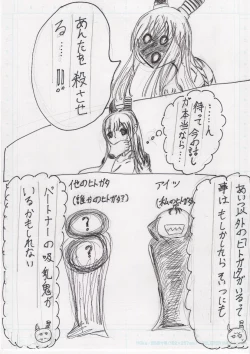 あんたを殺させ
る……!!!
……ん
待って今の話し
が本当なら…
あいつ以外のヒトガタがいるって
事はもしかしたらそいつにも
アイツ
(私のヒトガタ)
他のヒトガタ
(誰かのヒトガタ?)
?
?
パートナーの吸血鬼が
いるかもれない